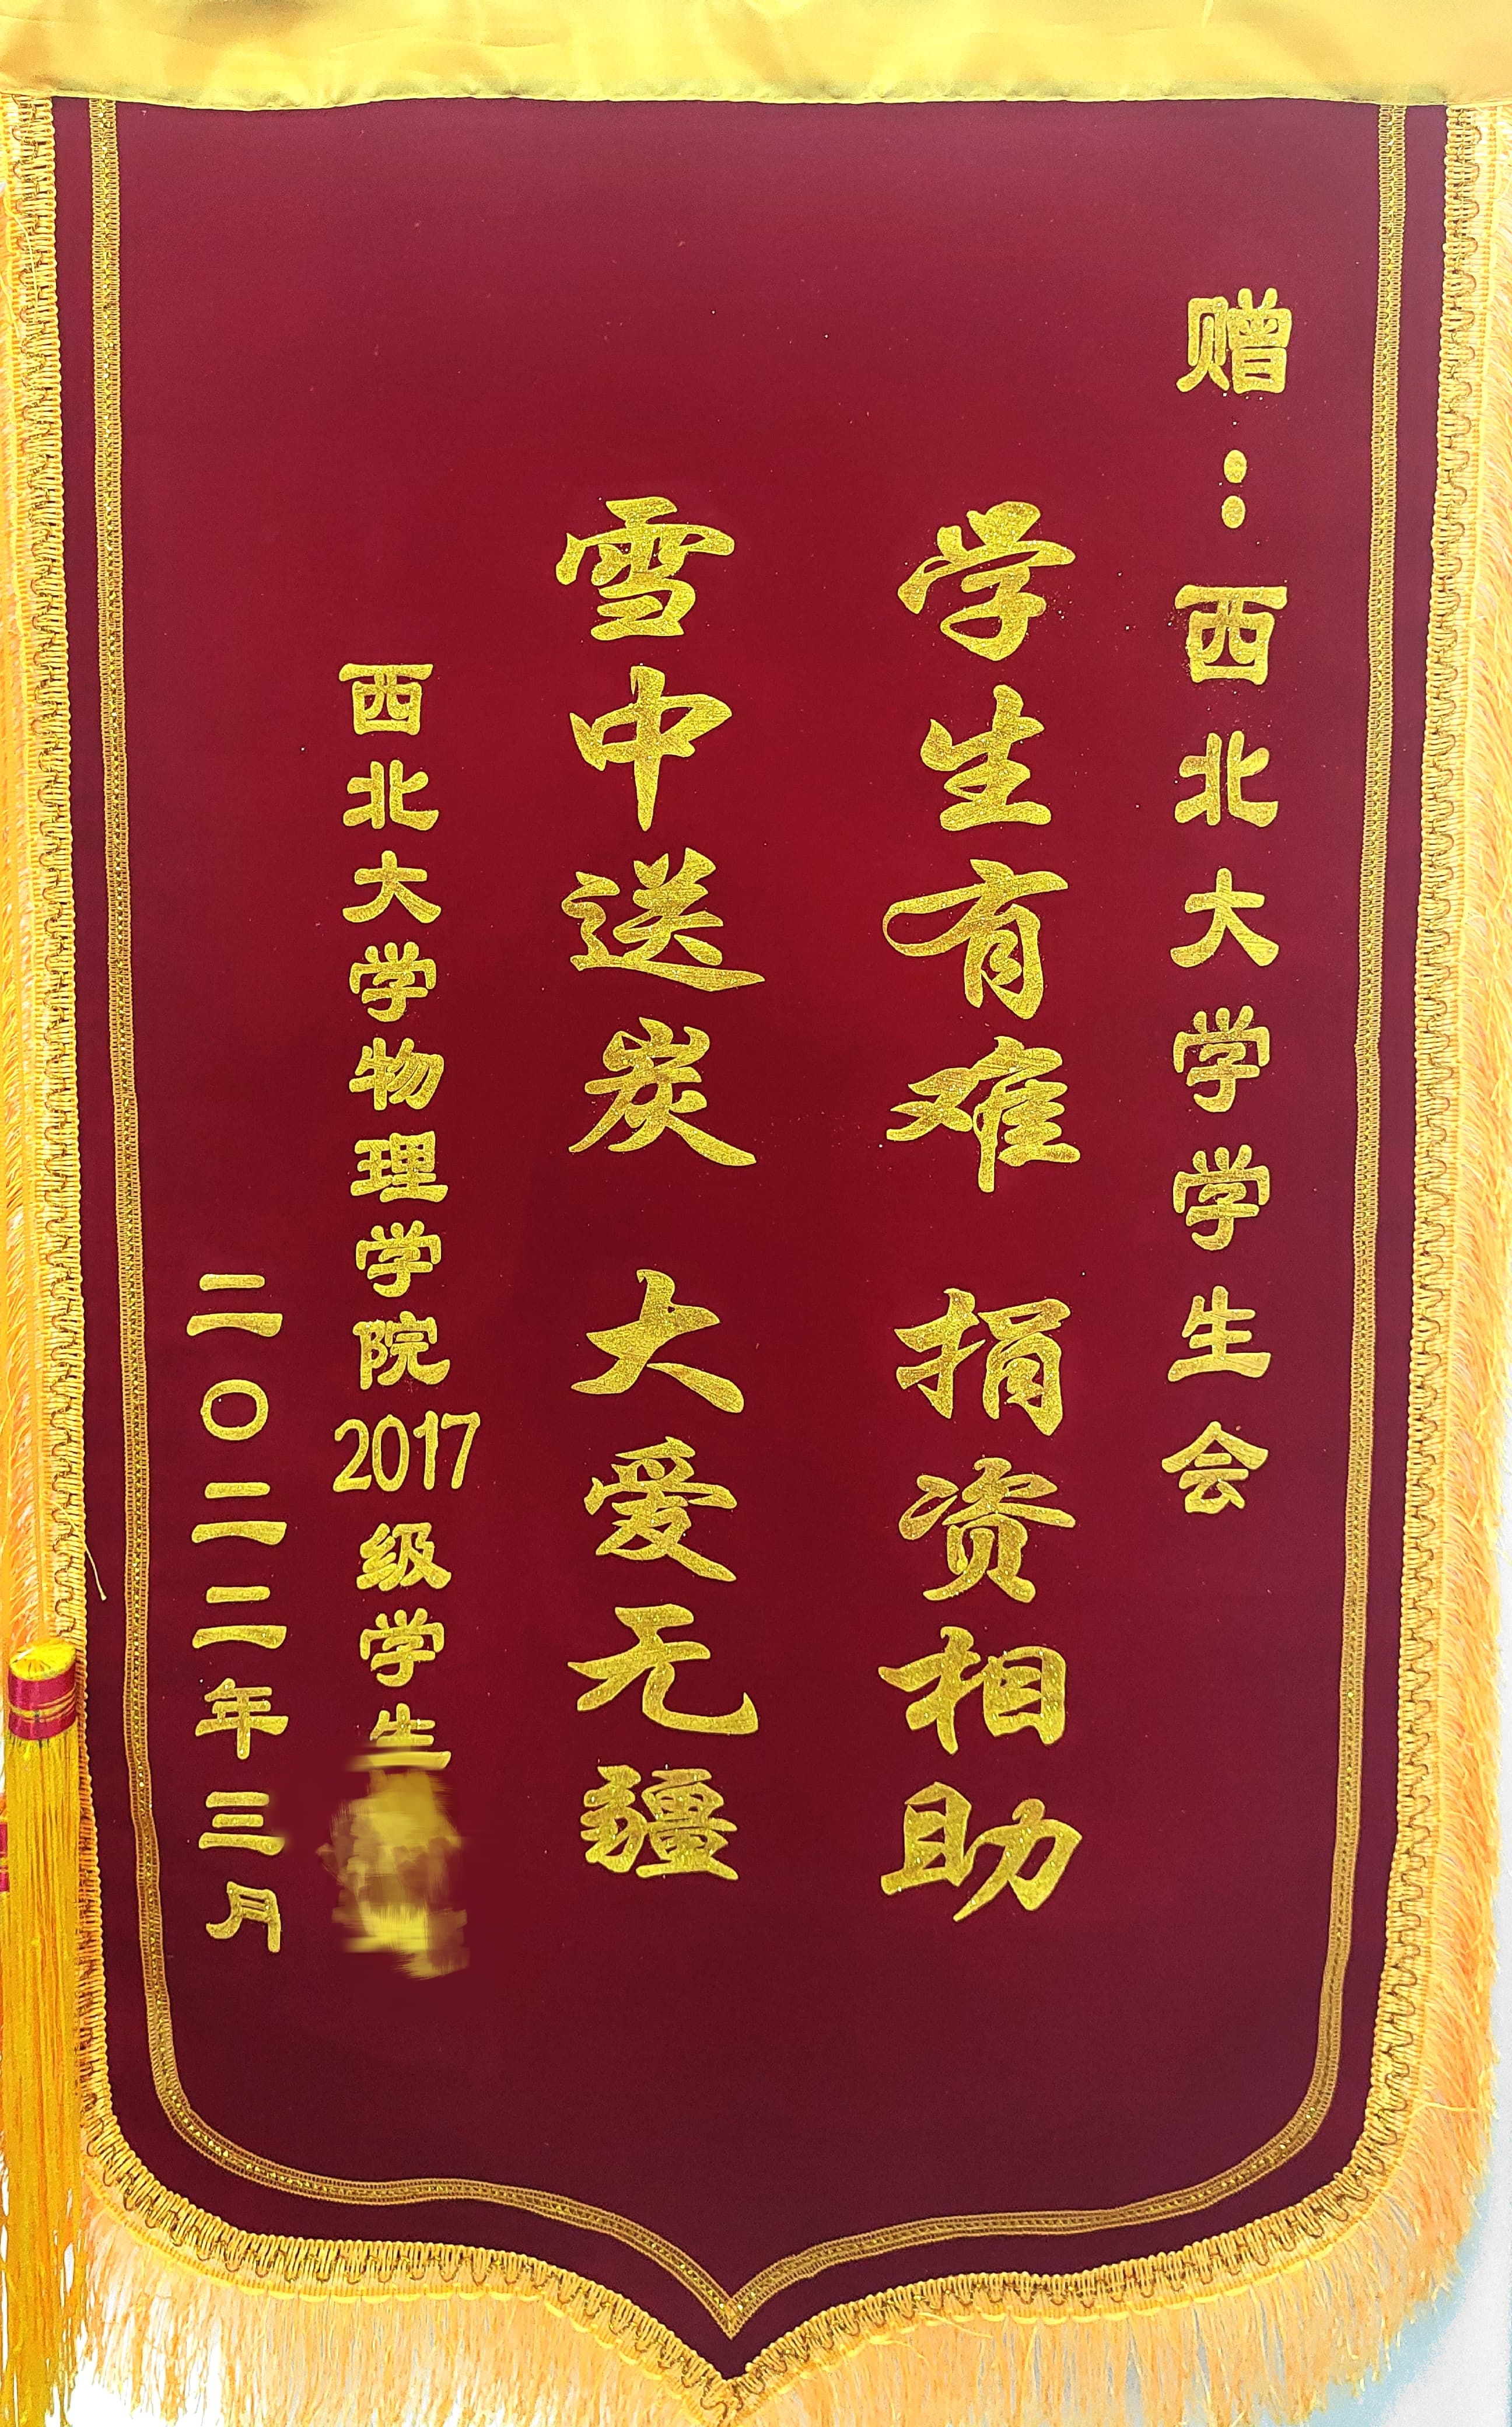 赠:西北大学学生会
学生有难 捐资相助
雪中送炭 大爱无疆
西北大学物理学院2017级学生
二〇二二年三月